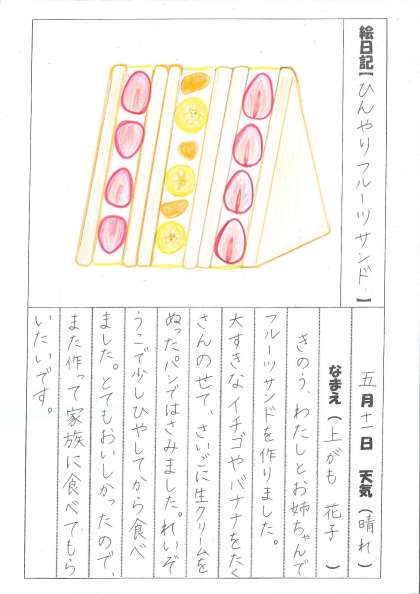 絵日記【ひんやりフルーツサンド】
五月十一日　天気（晴れ）
なまえ（上がも　花子）
きのう、わたしとお姉ちゃんで
フルーツサンドを作りました。
大すきなイチゴやバナナをたく
さんのせて、さいごに生クリームを
ぬったパンではさみました。れいぞ
うこで少しひやしてから食べ
ました。とてもおいしかったので、
また作って家族に食べてもら
いたいです。